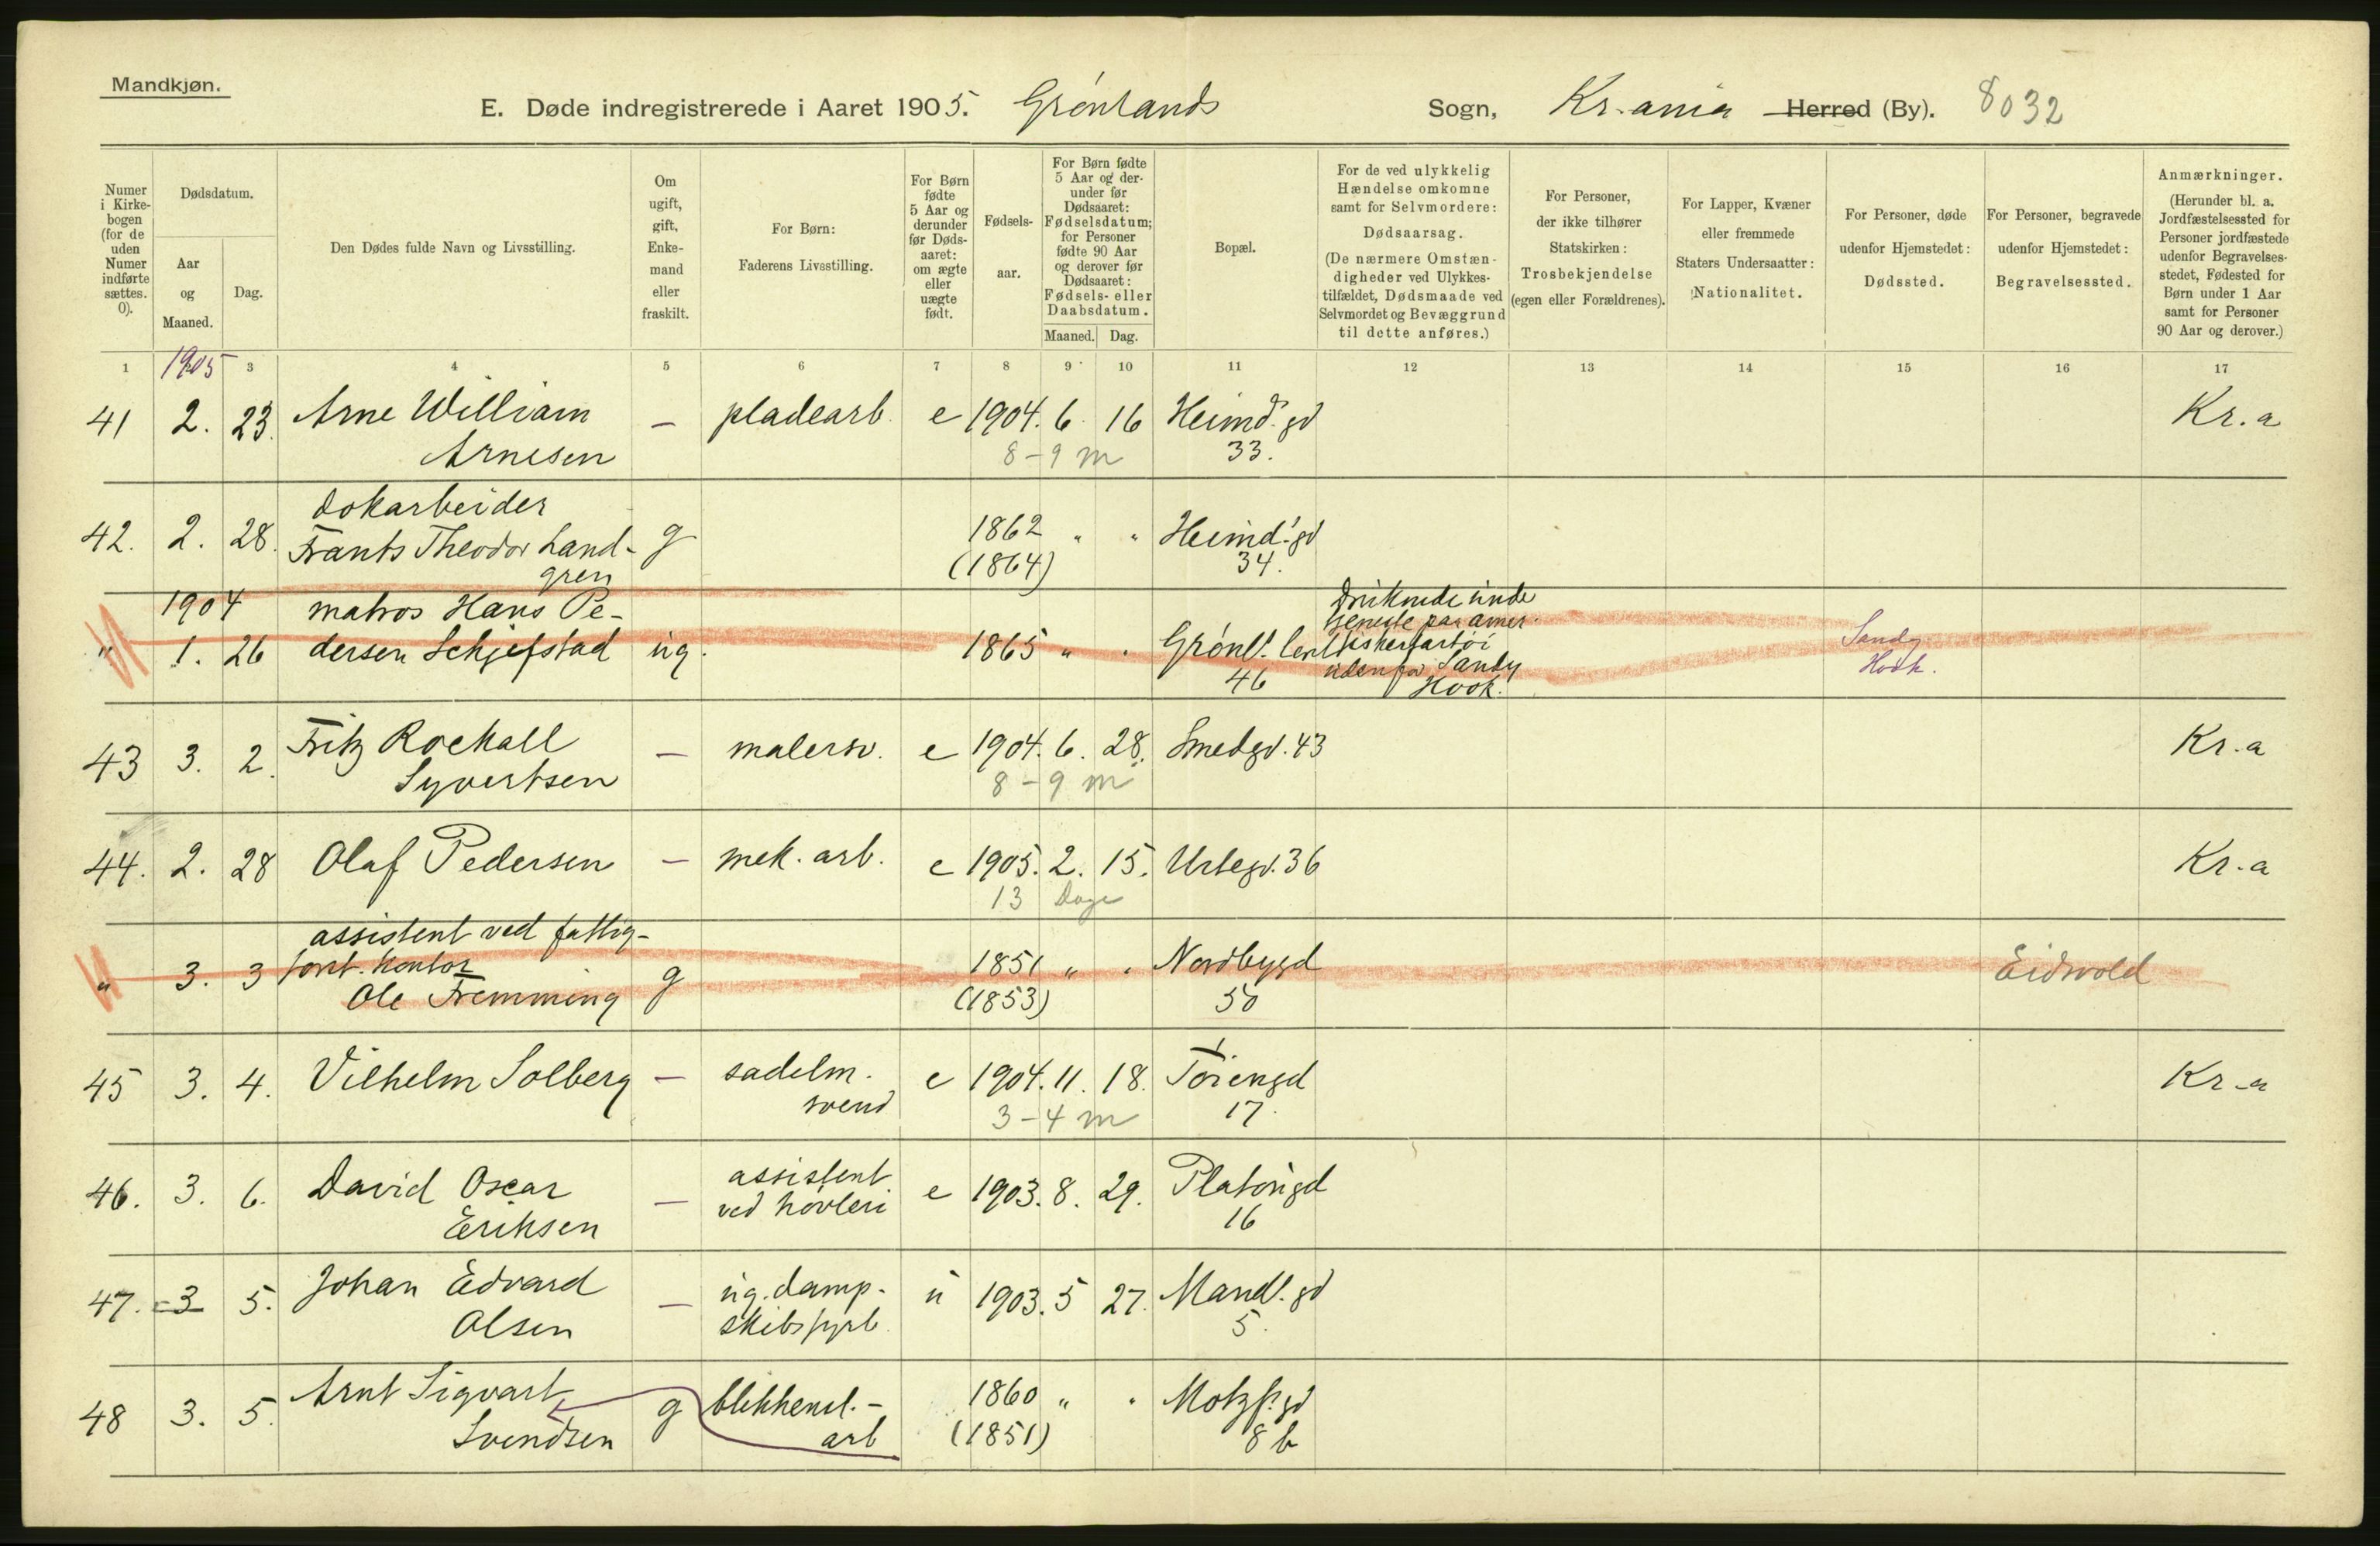 Mandkjøn.
E. Døde indregistrerede i Aaret 1905. Grønlands Sogn, Kr.ania Herred (By). 8032
Numer i Kirkebogen (for de uden Numer indførte sættes. 0).
Dødsdatum.
Aar og Maaned.
Dag.
Den Dødes fulde Navn og Livsstilling.
Om ugift, gift, Enkemand eller fraskilt.
For Børn: Faderens Livsstilling.
For Børn fødte 5 Aar og derunder før Dødsaaret: om ægte eller uægte født.
Fødselsaar.
For Børn fødte 5 Aar og derunder før Dødsaaret: Fødselsdatum; for Personer fødte 90 Aar og derover før Dødsaaret: Fødsels- eller Daabsdatum.
Maaned. Dag.
Bopæl.
For de ved ulykkelig Hændelse omkomne samt for Selvmordere: Dødsaarsag. (De nærmere Omstændigheder ved Ulykkestilfældet, Dødsmaade ved Selvmordet og Bevæggrund til dette anføres.)
For Personer, der ikke tilhører Statskirken: Trosbekjendelse (egen eller Forældrenes).
For Lapper, Kvæner eller fremmede Staters Undersaatter: Nationalitet.
For Personer, døde udenfor Hjemstedet: Dødssted.
For Personer, begravede udenfor Hjemstedet: Begravelsessted.
Anmærkninger. (Herunder bl. a. Jordfæstelsessted for Personer jordfæstede udenfor Begravelsesstedet, Fødested for Børn under 1 Aar samt for Personer 90 Aar og derover.)
1 1905 3 4 5 6 7 8 9 10 11 12 13 14 15 16 17
41 2. 23. Arne William — pladearb. e 1904. 6. 16 Heimd. gd Kr. a
Arnesen 8-9 m 33.
dokarbeider
42. 2. 28. Frants Theodor Land- g 1862 " " Heimd. gd
gren (1864) 34.
1904 matros Hans Pe- Druknede unde
" 1. 26 dersen Schjefstad ug. 1865 " " Grønl. tjeneste paa amer. Sandy
46 fiskerfartøi udenfor Sandy Hook. Hook.
43 3. 2. Fritz Rockall — malersv. e 1904. 6. 28. Smedgd. 43 Kr. a
Syvertsen 8-9 m
44. 2. 28 Olaf Pedersen — mek. arb. e 1905. 2. 15. Urtegd. 36 Kr. a
13 Dage
assistent ved fattig-
" 3. 3 forst. kontor g 1851 " " Nordbygd Eidsvold
Ole Fremming (1853) 50
45 3. 4. Vilhelm Solberg — sadelm. e 1904. 11. 18. Tøiengd Kr-a
svend 3-4 m 17.
46. 3. 6. David Oscar — assistent e 1903. 8. 29. Platougd
Eriksen ved høvleri 16
47. 3 5. Johan Edvard — ug. damp- u 1903. 5 27. Mandl. gd
Olsen skibsfyrb. 5.
48 3. 5. Arnt Sigvart g blikkensl.- 1860 " " Motzf. gd
Svendsen arb (1851) 8 b